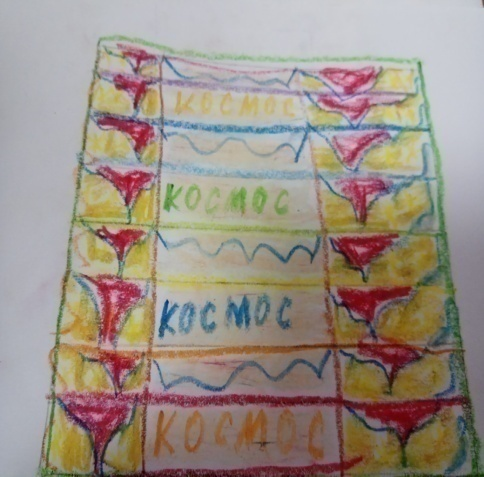 КОСМОС
КОСМОС
КОСМОС
КОСМОС